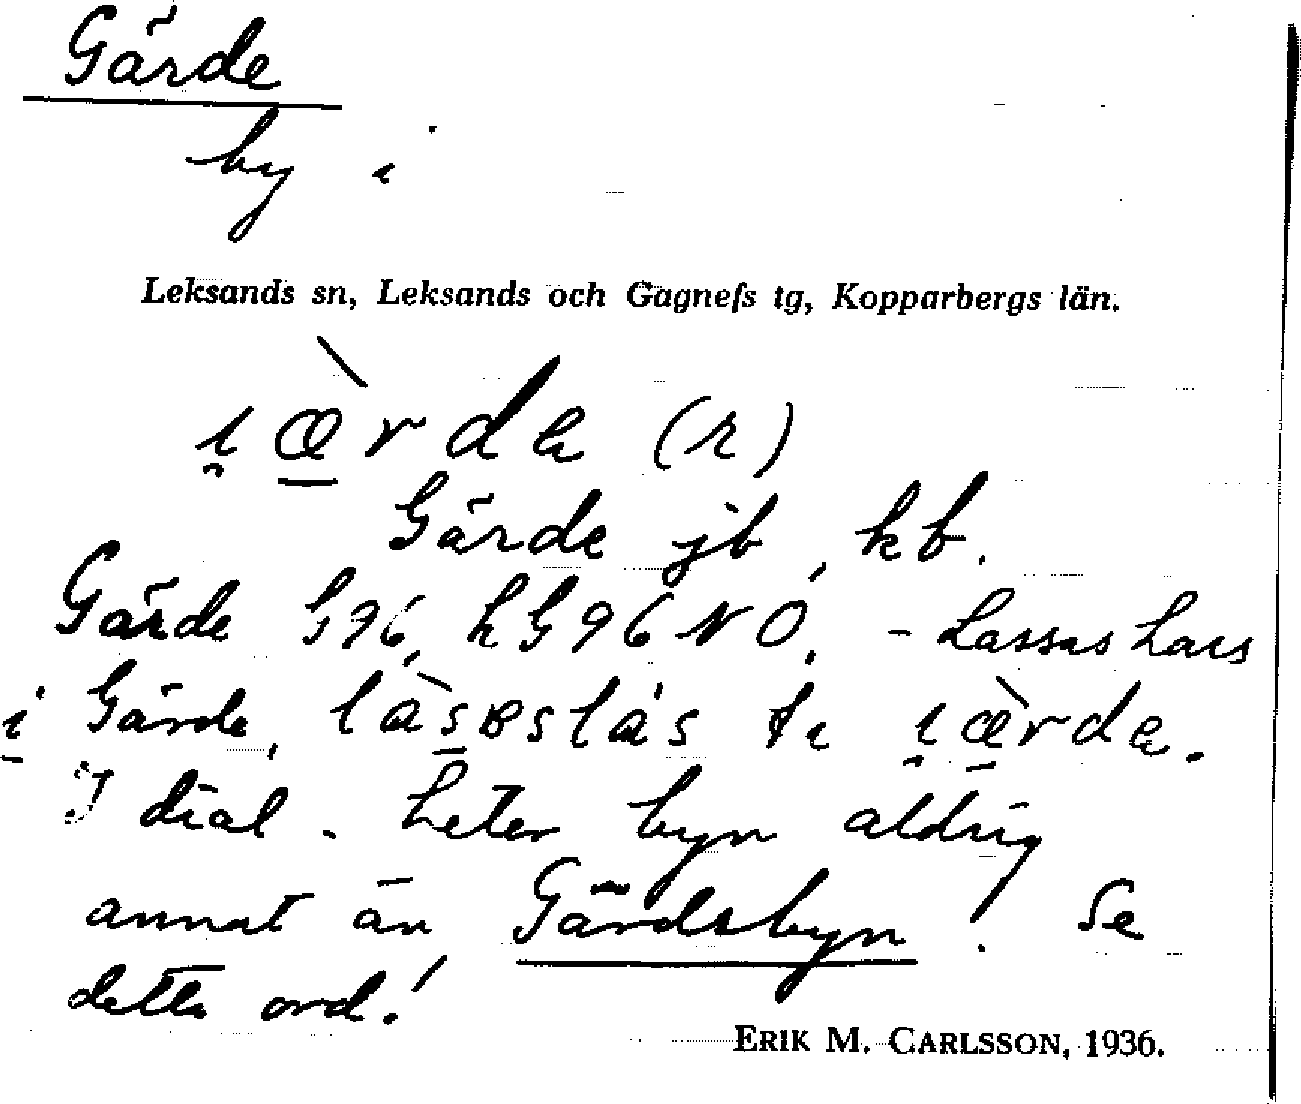 Gärde
by i
Leksands sn, Leksands och Gagnefs tg, Kopparbergs län.
(r)
Gärde jb, kb.
Gärde G96, hG96NO, - Lassas Lars
i Gärde,
I dial. heter byn aldrig
annat än Gärdsbyn! Se
detta ord!
ERIK M. CARLSSON, 1936.